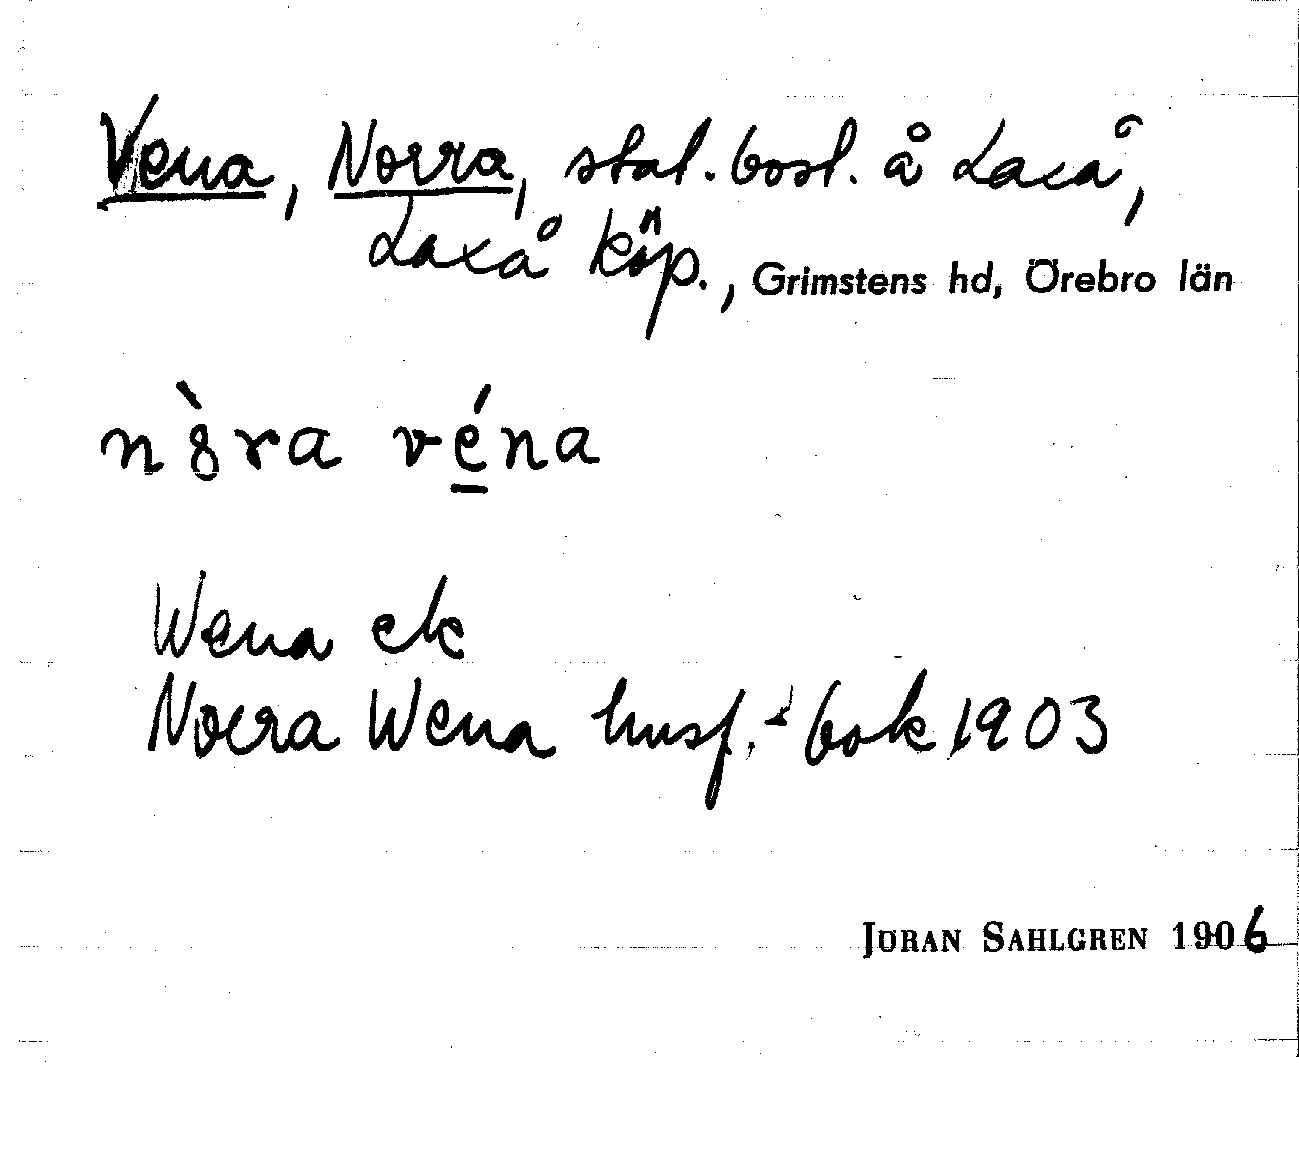 Vena, Norra, stat.bost. å Laxå,
Laxå köp., Grimstens hd, Örebro län
nò̀ra véna
Wena ek
Norra Wena husf.-bok 1903
JÖRAN SAHLGREN 1906